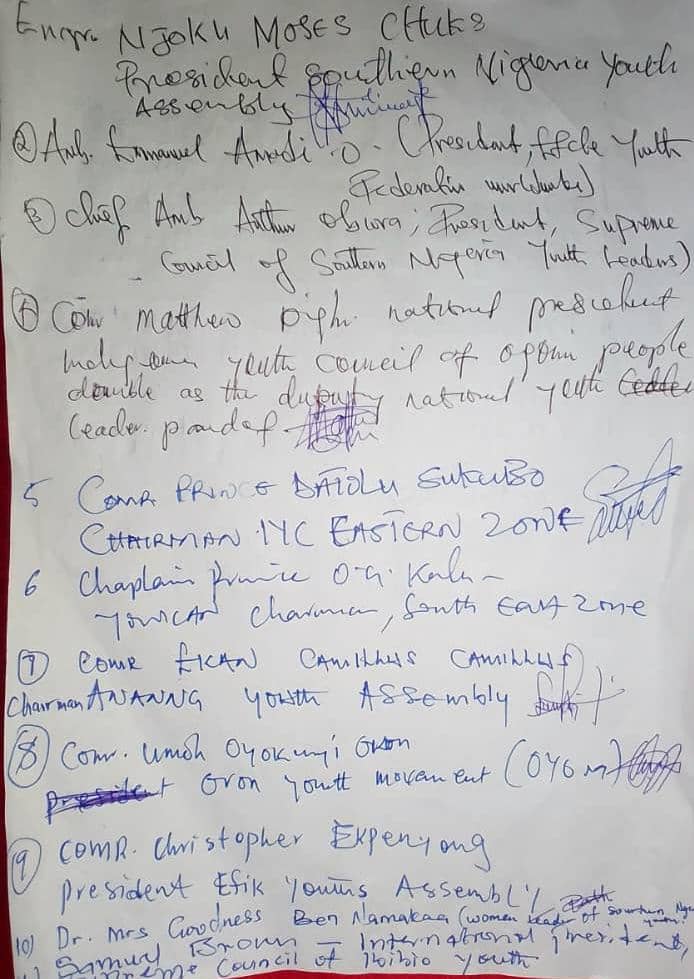 Engr. NJOKU MOSES CHUKS
President Southern Nigeria Youth
ASSEMBLY
② Amb. Emmanuel O. (President, Youth
Federation worldwide)
③ Chief Amb Arthur Obiora; President, Supreme
Council of Southern Nigeria Youth Leaders)
④ Com Matthew national president
youth council of people
double as the national youth
leader.
5 COMR PRINCE DATOLU SUKUBO
CHAIRMAN IYC EASTERN ZONE
6 Chaplain Prince O.G. Kalu -
YOWICAN Chairman, South EAST Zone
⑦ COMR EKAN CAMILLUS CAMILLUS
Chairman ANANNG YOUTH ASSEMBLY
⑧ Comr. Umoh Oyokunyi Okon
President Oron Youth movement (OYOM)
⑨ COMR. Christopher Expenyong
President Efik Youths ASSEMBLY
10) Dr. Mrs Goodness Ben Namakaa (women leader of southern
Samuel Brown - International President,
Supreme Council of Ibibio youth